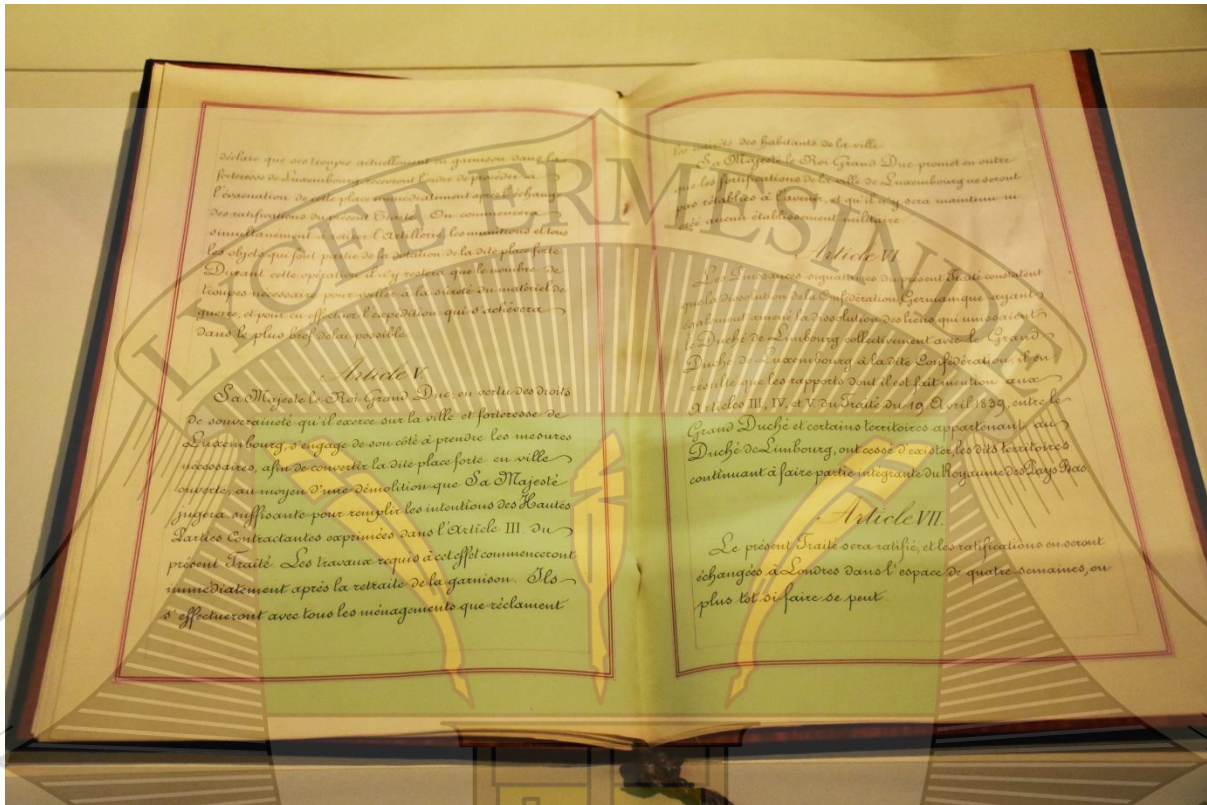 déclare que ses troupes actuellement en garnison dans la
forteresse de Luxembourg recevront l'ordre de procéder à
l'évacuation de cette place immédiatement après l'échange
des ratifications du présent Traité. On commencera
simultanément à retirer l'Artillerie, les munitions et tous
les objets qui font partie de la dotation de la dite place forte
Durant cette opération il n'y restera que le nombre de
troupes nécessaire pour veiller à la sûreté du matériel de
guerre, et pour en effectuer l'expédition qui s'achèvera
dans le plus bref délai possible
Article V.
Sa Majesté le Roi Grand Duc, en vertu des droits
de souveraineté qu'il exerce sur la ville et forteresse de
Luxembourg, s'engage de son côté à prendre les mesures
nécessaires, afin de convertir la dite place forte en ville
ouverte, au moyen d'une démolition que Sa Majesté
jugera suffisante pour remplir les intentions des Hautes
Parties Contractantes exprimées dans l'Article III. du
présent Traité. Les travaux requis à cet effet commenceront
immédiatement après la retraite de la garnison. Ils
s'effectueront avec tous les ménagements que réclament
les intérêts des habitants de la ville
Sa Majesté le Roi Grand Duc promet en outre
que les fortifications de la ville de Luxembourg ne seront
pas rétablies à l'avenir, et qu'il n'y sera maintenu ni
créé aucun établissement militaire
Article VI.
Les Puissances signataires du présent Traité constatent
que la dissolution de la Confédération Germanique ayant
également amené la dissolution des liens qui unissaient
le Duché de Limbourg collectivement avec le Grand
Duché de Luxembourg à la dite Confédération, il en
résulte que les rapports dont il est fait mention aux
Articles III, IV, et V. du Traité du 19 Avril 1839, entre le
Grand Duché et certains territoires appartenant au
Duché de Limbourg, ont cessé d'exister, les dits territoires
continuant à faire partie intégrante du Royaume des Pays Bas
Article VII.
Le présent Traité sera ratifié, et les ratifications en seront
échangées à Londres dans l'espace de quatre semaines, ou
plus tôt si faire se peut.
LYCÉE ERMESINDE